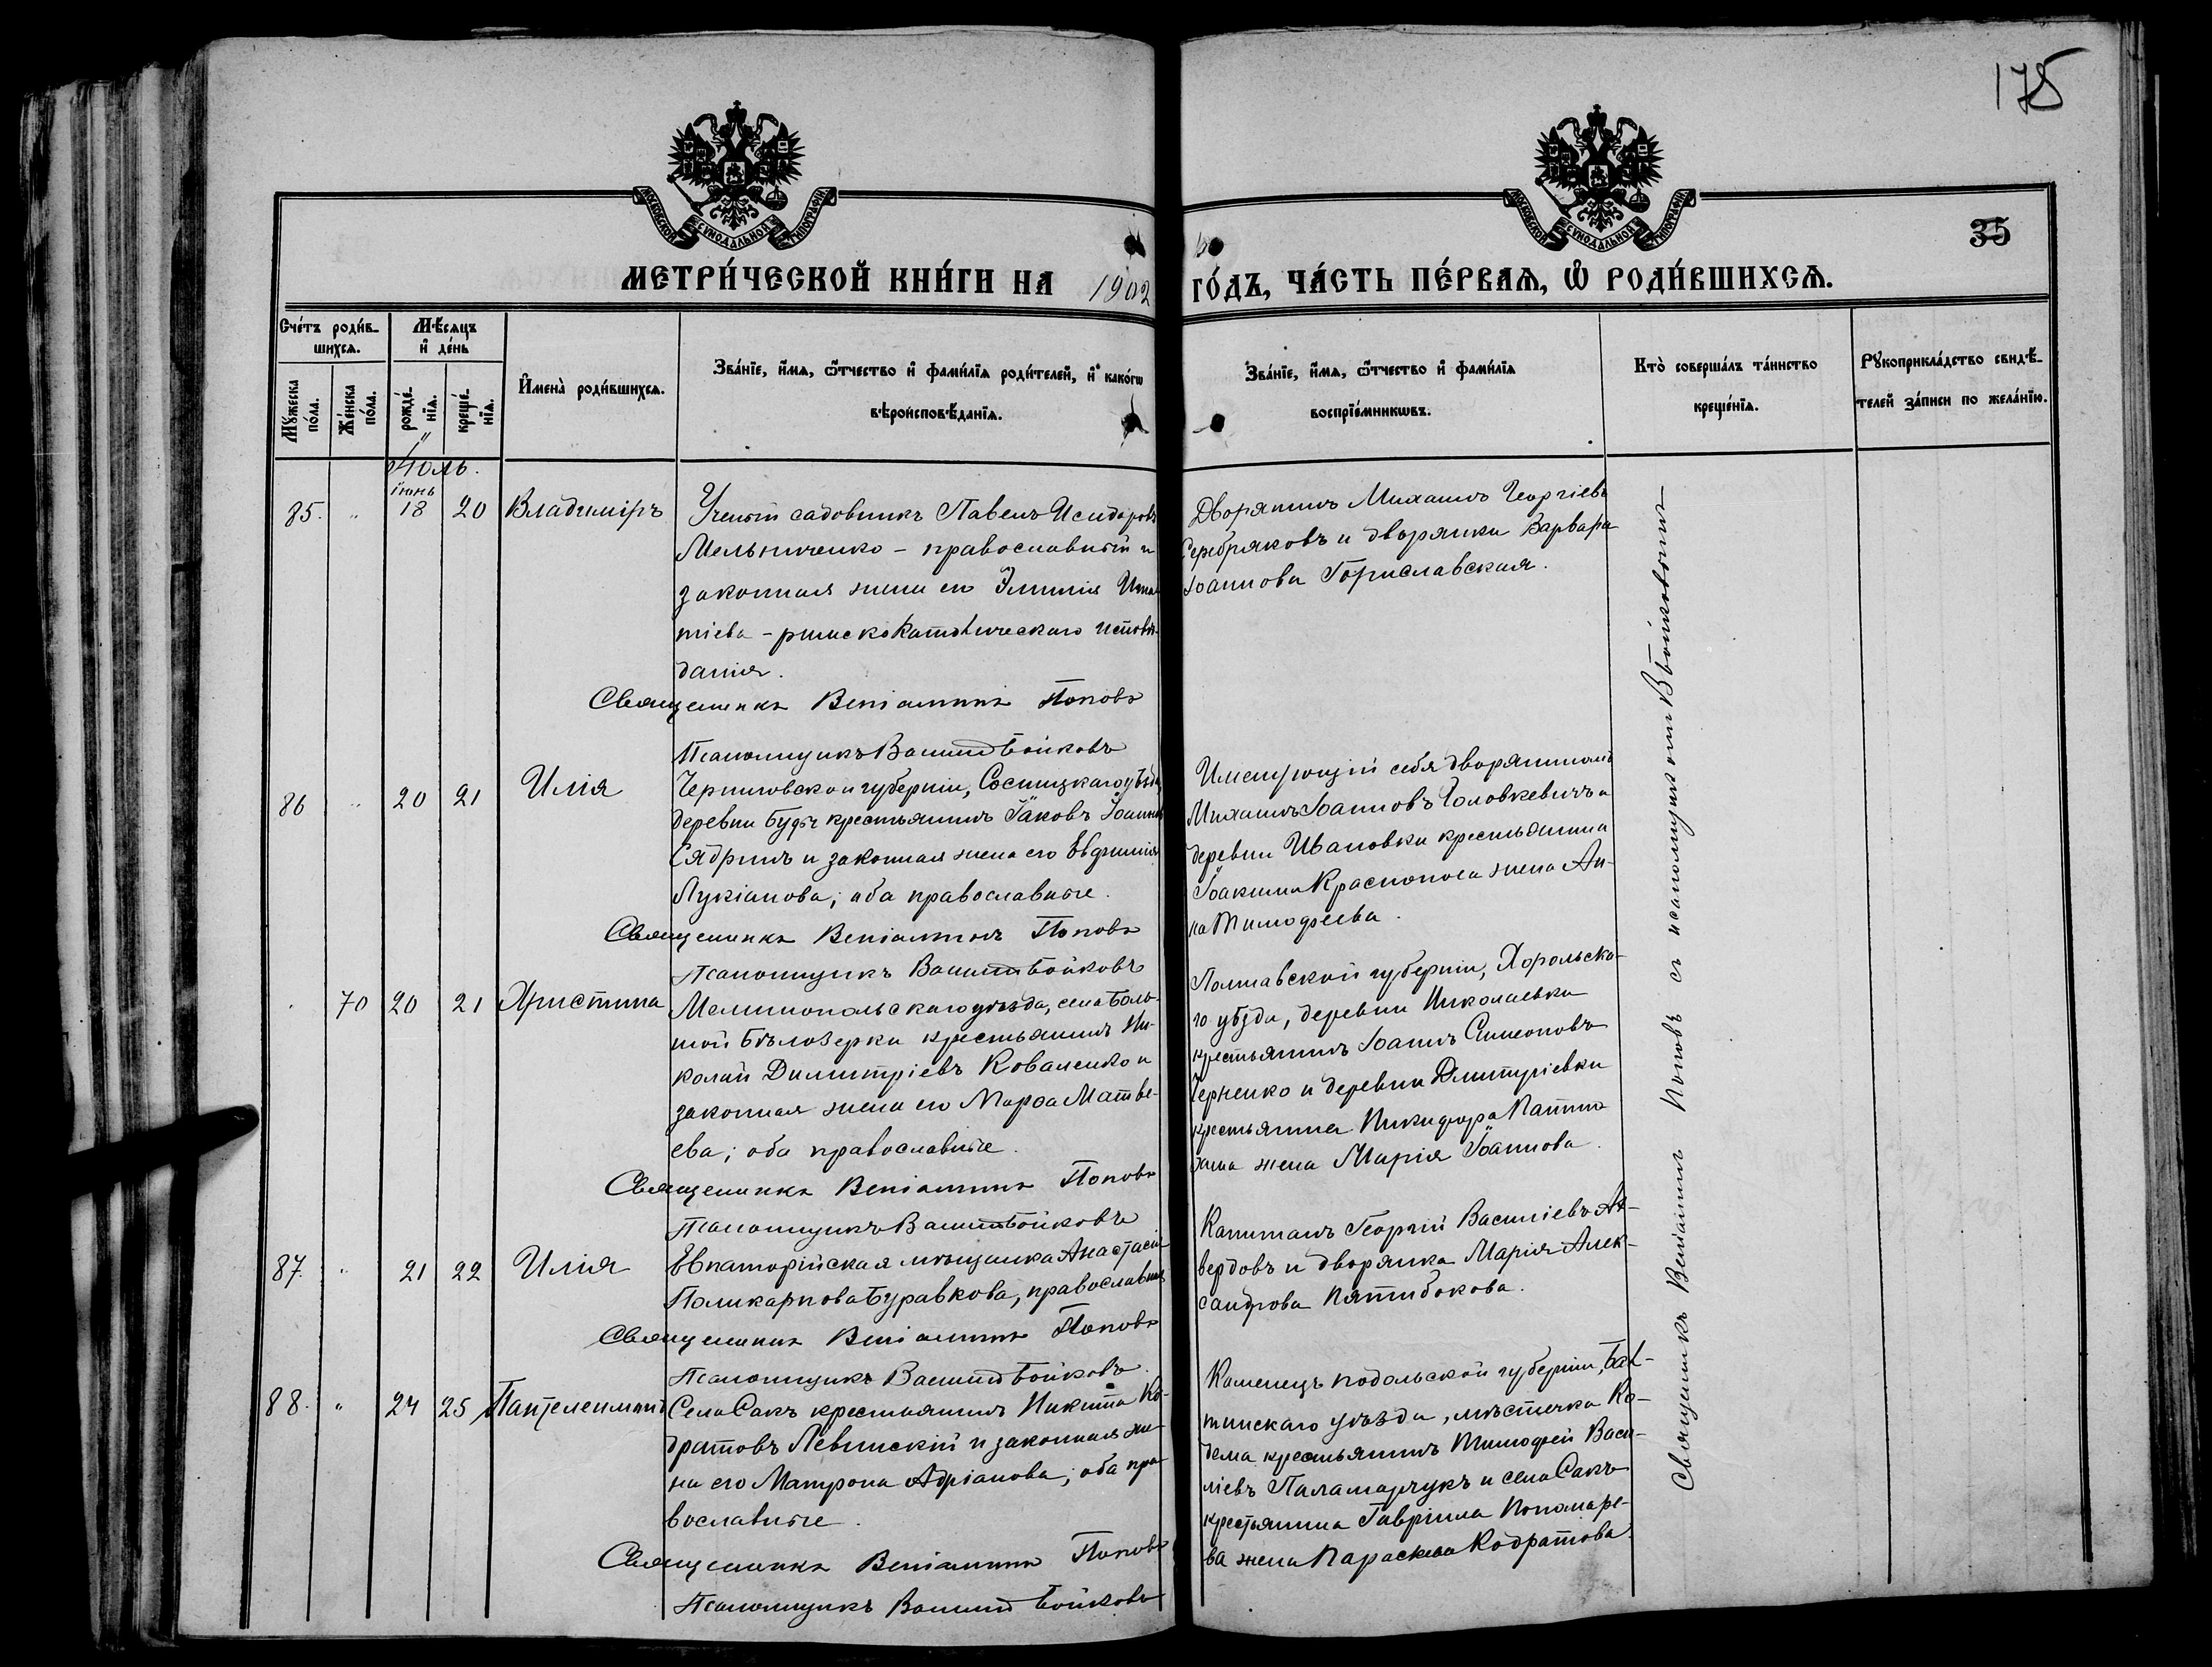 175
МОСКОВСКОЙ СУНОДАЛЬНОЙ ТИПОГРАФІИ
МОСКОВСКОЙ СУНОДАЛЬНОЙ ТИПОГРАФІИ
35
МЕТРИ́ЧЕСКОЙ КНИ́ГИ НА 1902 ГО́ДЪ, ЧА́СТЬ ПЕ́РВАѦ, Ѽ РОДИ́ВШИХСѦ.
Сче́тъ роди́в-
шихсѧ.
Мѣ́сѧцъ
и҆ де́нь
Мꙋ́жеска
по́ла.
Же́нска
по́ла.
рожде́-
нїѧ.
креще́-
нїѧ.
И҆мена̀ роди́вшихсѧ.
Зва́нїе, и҆́мѧ, ѻ҆́тчество и҆ фами́лїѧ роди́телей, и҆ како́гѡ
вѣроисповѣ́данїѧ.
Зва́нїе, и҆́мѧ, ѻ҆́тчество и҆ фами́лїѧ
воспрїе́мникѡвъ.
Кто̀ соверша́лъ та́инство
креще́нїѧ.
Рꙋкоприкла́дство свидѣ́-
телей за́писи по жела́нїю.
Іюль.
іюнь
85. " 18 20 Владиміръ
Ученый садовникъ Павелъ Исидоровъ
Мельниченко - православный и
законная жена его Эмилія Игна
тіева - римскокатолическаго исповѣ-
данія.
Священникъ Веніаминъ Поповъ
Псаломщикъ Василій Бойковъ
Дворянинъ Михаилъ Георгіевъ
Серебряковъ и дворянка Варвара
Іоаннова Гориславская.
86 " 20 21 Илія
Черниговской губерніи, Сосницкаго уѣзда,
деревни Будъ крестьянинъ Іаковъ Іоанновъ
Сядринъ и законная жена его Евфимія
Лукіанова; оба православные.
Священникъ Веніаминъ Поповъ
Псаломщикъ Василій Бойковъ
Именующій себя дворяниномъ
Михаилъ Іоанновъ Головкевичъ и
деревни Ивановки крестьянина
Іоакима Краснопола жена Ан-
на Тимофеева.
70 20 21 Христина
Мелитопольскаго уѣзда, села Боль-
шой Бѣлозерки крестьянинъ Ни-
колай Димитріевъ Коваленко и
законная жена его Марѳа Матве-
ева; оба православные.
Священникъ Веніаминъ Поповъ
Псаломщикъ Василій Бойковъ
Полтавской губерніи, Хорольска-
го уѣзда, деревни Николаевки
крестьянинъ Іоаннъ Симеоновъ
Черненко и деревни Дмитріевки
крестьянина Никифора
жена Марія Іоаннова.
87. " 21 22 Илія
Евпаторійская мѣщанка Анастасія
Поликарпова Буравкова, православная
Священникъ Веніаминъ Поповъ
Псаломщикъ Василій Бойковъ.
Капитанъ Георгій Василіевъ Ах-
вердовъ и дворянка Марія Алек-
сандрова Пятибокова.
88. " 24 25 Пантелеимонъ
Села Сакъ крестьянинъ Никита Ко-
дратовъ Левинскій и законная же-
на его Матрона Адріанова; оба пра-
вославные.
Священникъ Веніаминъ Поповъ
Псаломщикъ Василій Бойковъ
Каменецъ подольской губерніи, Бал-
тинскаго уѣзда, мѣстечка Ко-
дема крестьянинъ Тимофей Васи-
ліевъ Паламарчукъ и села Сакъ
крестьянина Гавріила Пономаре-
ва жена Параскева Кодратова.
Священникъ Веніаминъ Поповъ съ псаломщикомъ В. Бойковымъ